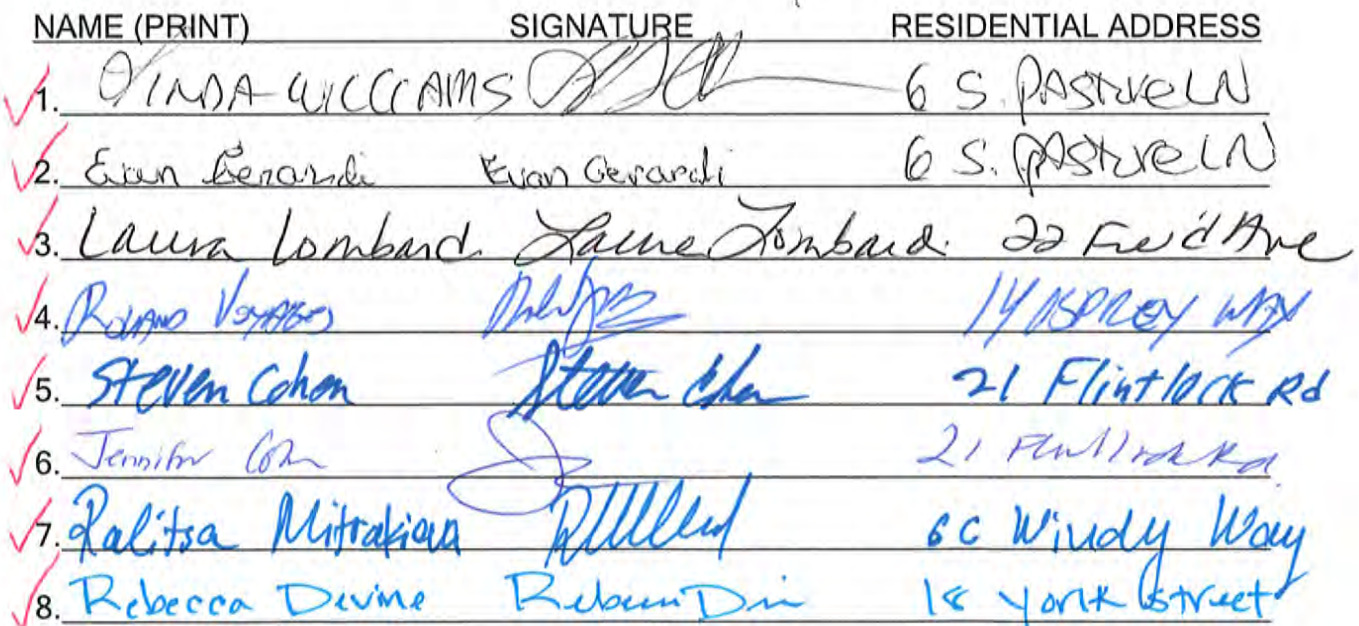 NAME (PRINT) SIGNATURE RESIDENTIAL ADDRESS
1. LINDA WILLIAMS 6 S. PASTURE LN
2. Evan Gerardi Evan Gerardi 6 S. PASTURE LN
3. Laura Lombard Laura Lombard 22 Field Ave
4. 14 OSPREY WAY
5. Steven Cohen Steven Cohen 21 Flintlock Rd
6. Jennifer Cohn 21 Flintlock Rd
7. Ralitsa Mitrakieva 6C Windy Way
8. Rebecca Devine 18 York Street